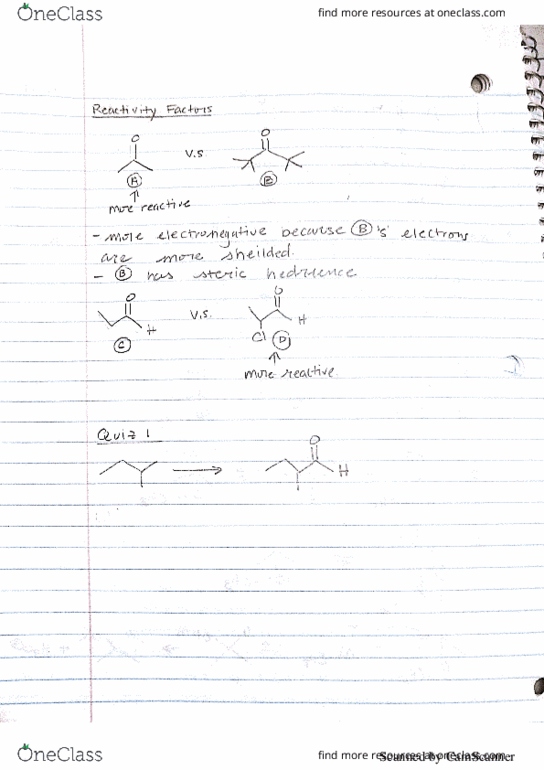 OneClass
find more resources at oneclass.com
Reactivity Factors
O O
V.S
A B
more reactive
- more electronegative because B's electrons
are more sheilded.
- B has steric hedruence
O O
V.S.
H H
C Cl D
more reactive.
Quiz 1
O
H
OneClass
find more resources at oneclass.com
Scanned by CamScanner